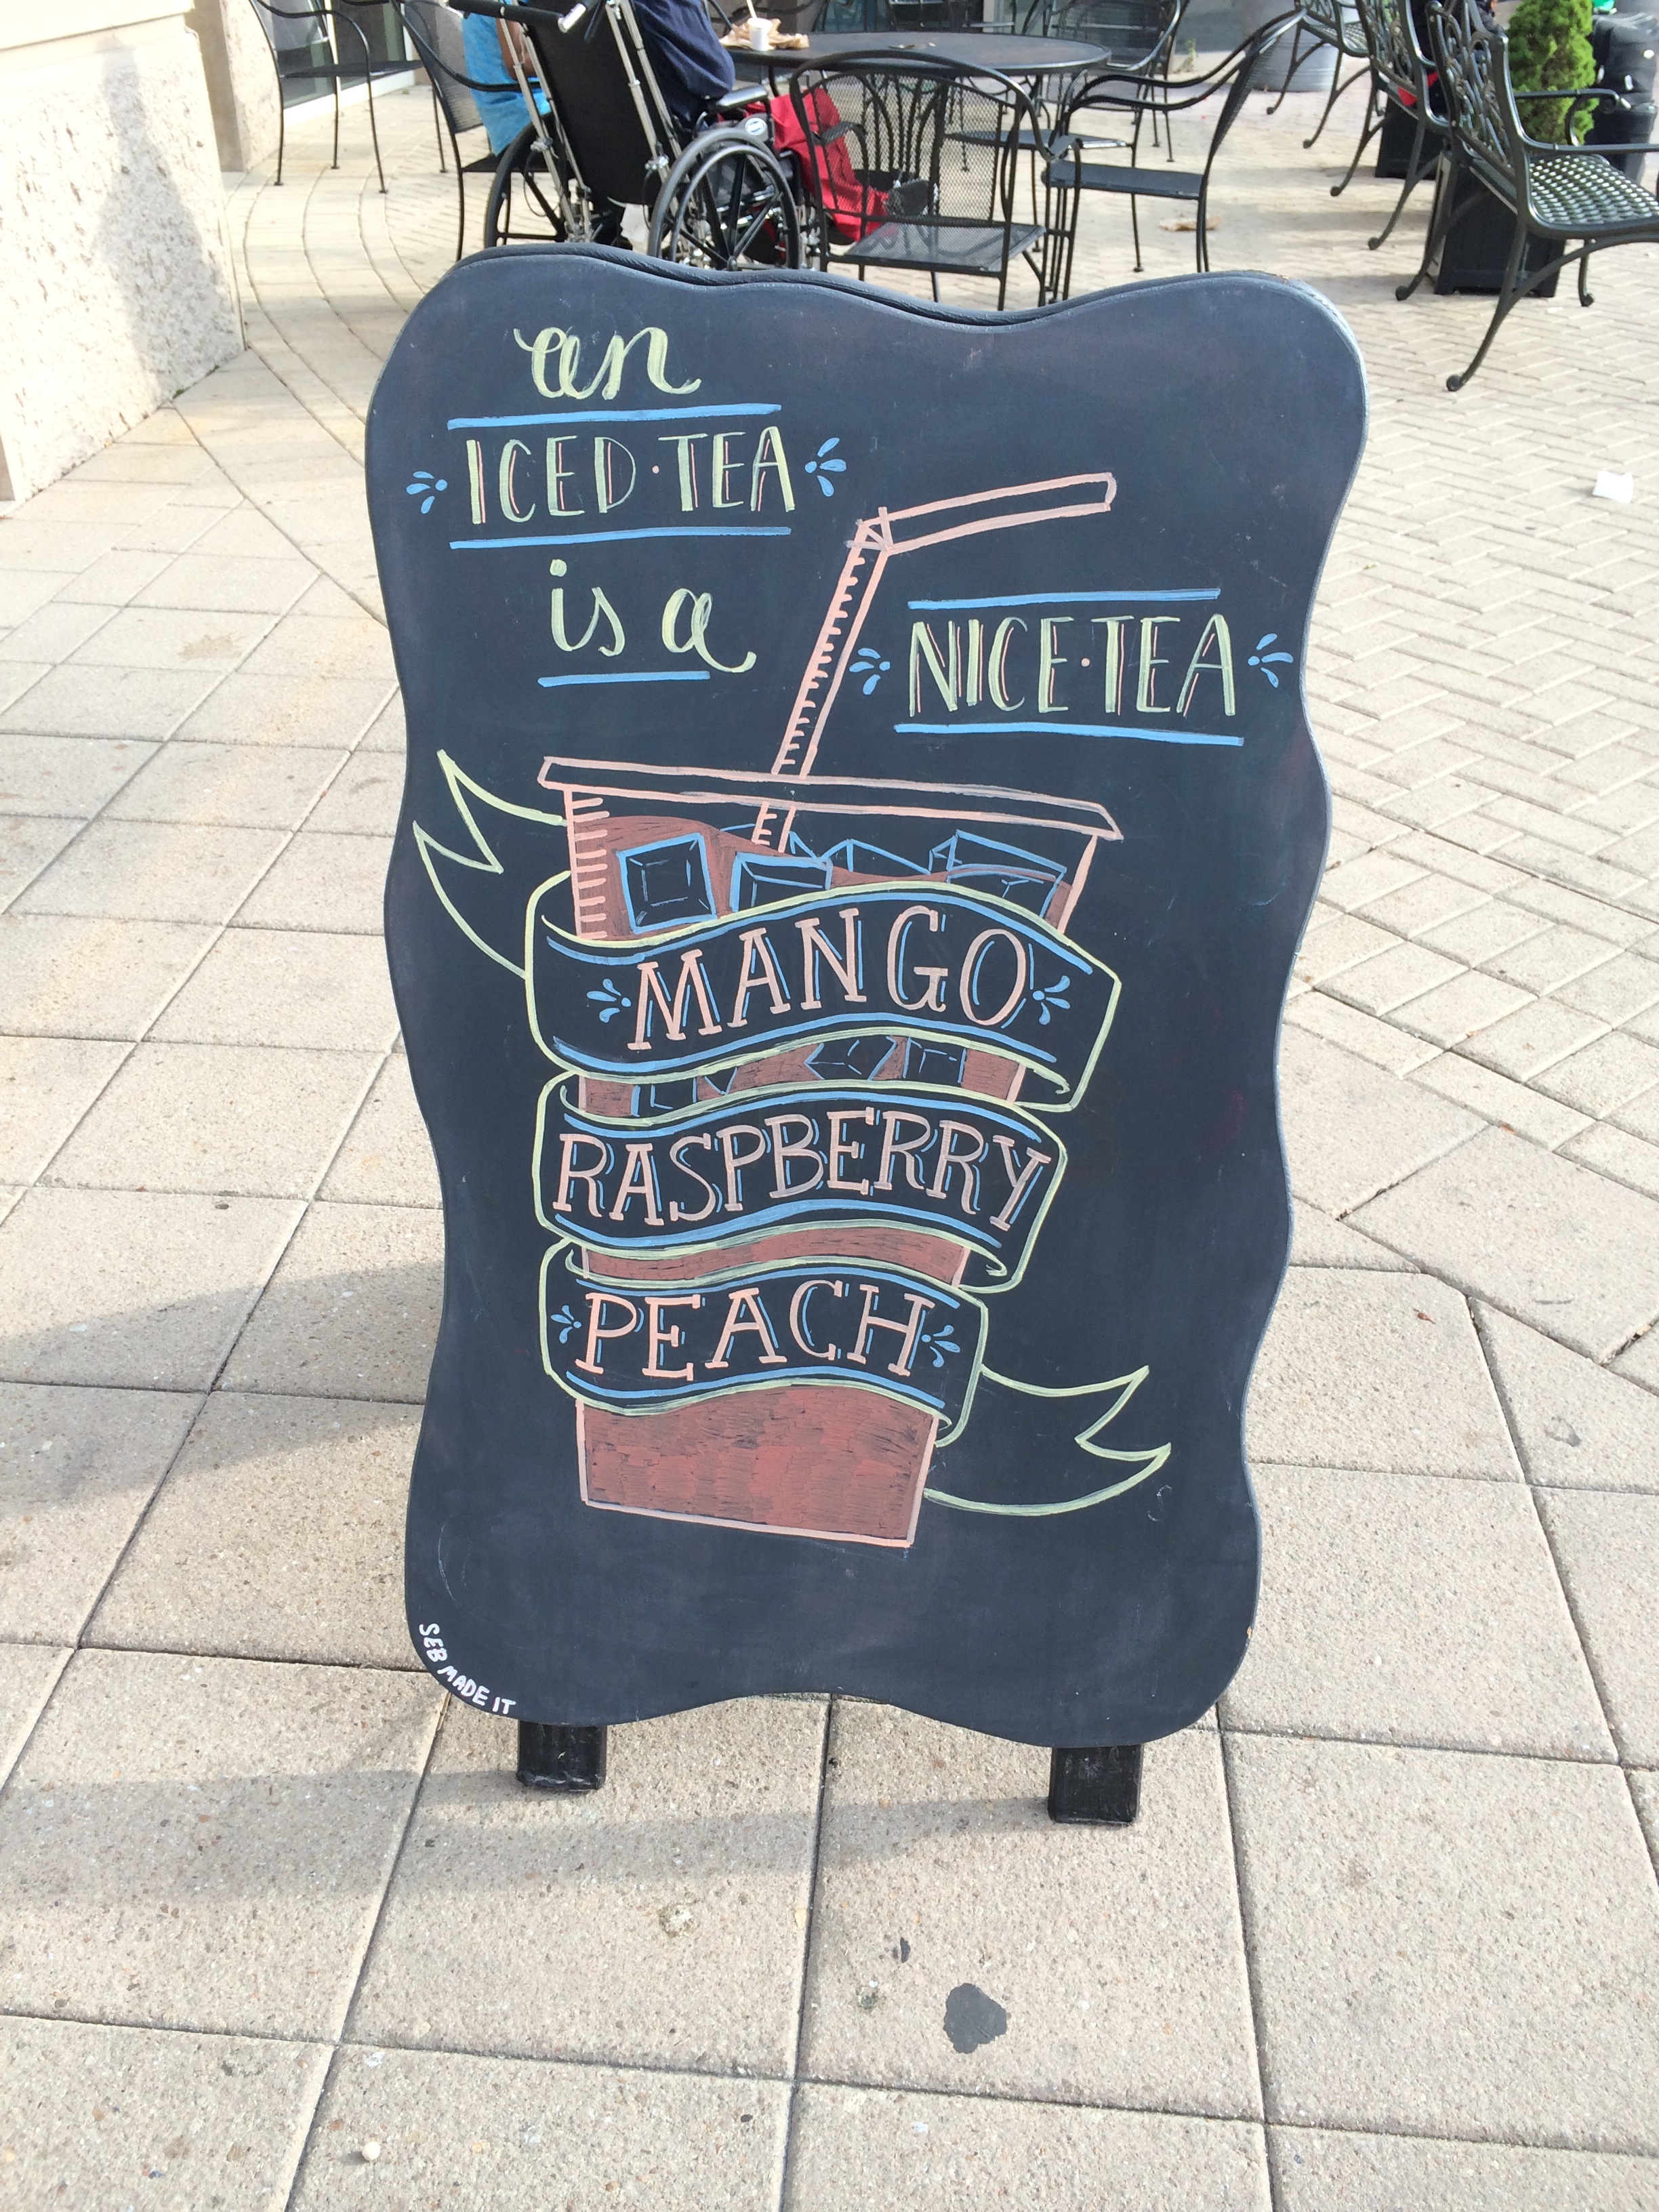 an
ICED·TEA
is a
NICE·TEA
MANGO
RASPBERRY
PEACH
SEB MADE IT